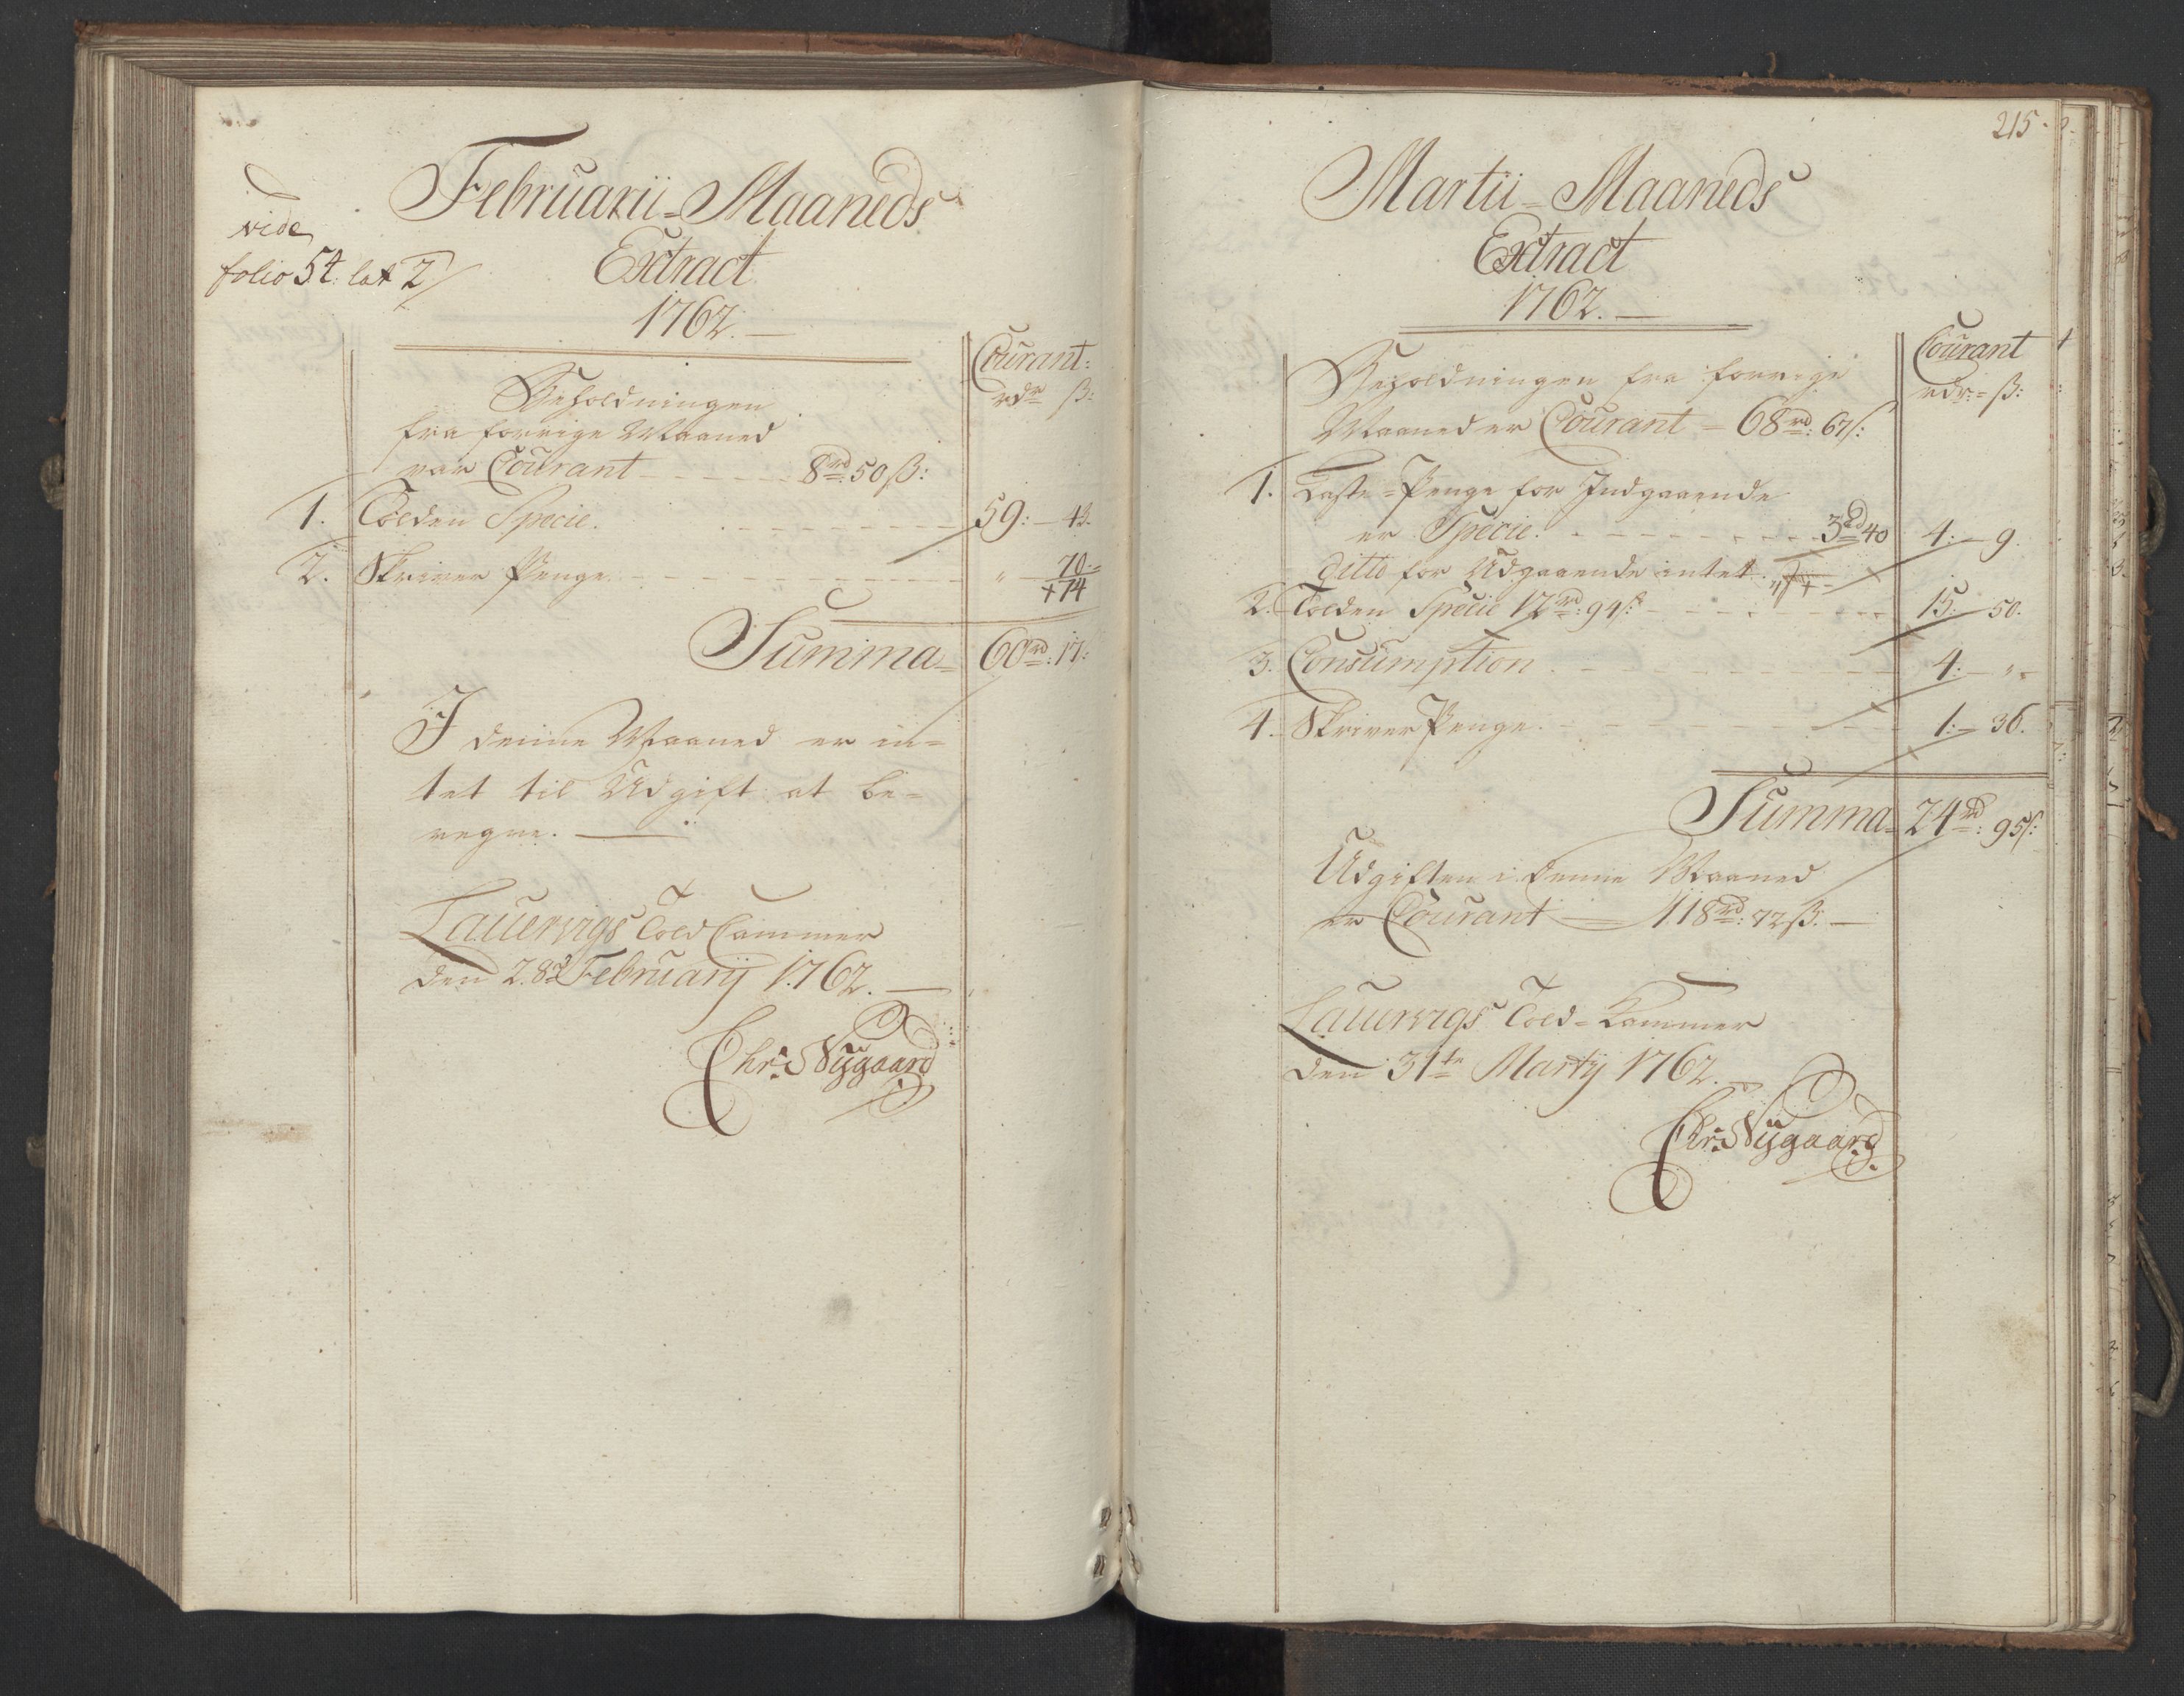 vide
folio 54. lat 2
Februarii-Maaneds
Extract
1762.
Courant:
rdr ß:
Beholdningen
fra forrige Maaned
var Courant - - - - - 8rd 50ß:
1. Tolden Specie. - - - - - - - - 59: - 43.
2. Skriver Penge. - - - - - - - - " - 70.
+ 74
Summa- 60rd: 17:
I denne Maaned er in=
tet til Udgift at be=
regne.
Laurvigs Told Cammer
den 28d Februarij 1762.
Chr: Nÿgaard
215.
Martii-Maaneds
Extract
1762.
Courant
rdr: = ß:
Beholdningen fra forrige
Maaned er Courant - 68rd: 67ß:
1. Laste-Penge for Indgaaende
er Specie. - - - - - - - - 3rd 40 4: - 9.
ditto for Udgaaende intet.
2. Tolden Specie 12rd: 94ß: - - - - - - 15: - 50.
3. Consumption - - - - - - - - 4: - "
4. Skriver Penge. - - - - - - - - 1: - 36.
Summa- 24rd: 95ß:
Udgiften i denne Maaned
er Courant — 118rd: 72ß. —
Laurvigs Told-Kammer
den 31te Martij 1762.
Chr: Nÿgaard